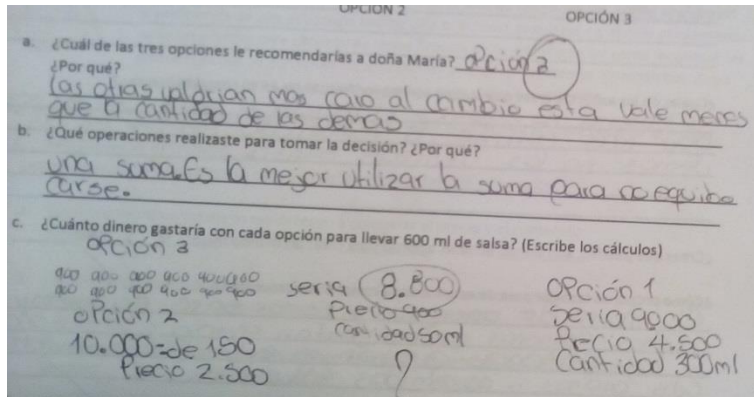 OPCIÓN 2
OPCIÓN 3
a. ¿Cuál de las tres opciones le recomendarías a doña María? opción 2
¿Por qué?
las otras valdrian mas caro al cambio esta vale menos
que la cantidad de las demas
b. ¿Qué operaciones realizaste para tomar la decisión? ¿Por qué?
una suma. Es la mejor utilizar la suma para no equibo
carse.
c. ¿Cuánto dinero gastaría con cada opción para llevar 600 ml de salsa? (Escribe los cálculos)
opción 3
900 900 900 900 900 900
900 900 900 900 900 900
seria 8.800
Precio 900
cantidad 50ml
?
opción 2
10.000 = de 150
Precio 2.500
opción 1
Seria 9000
Precio 4.500
Cantidad 300ml